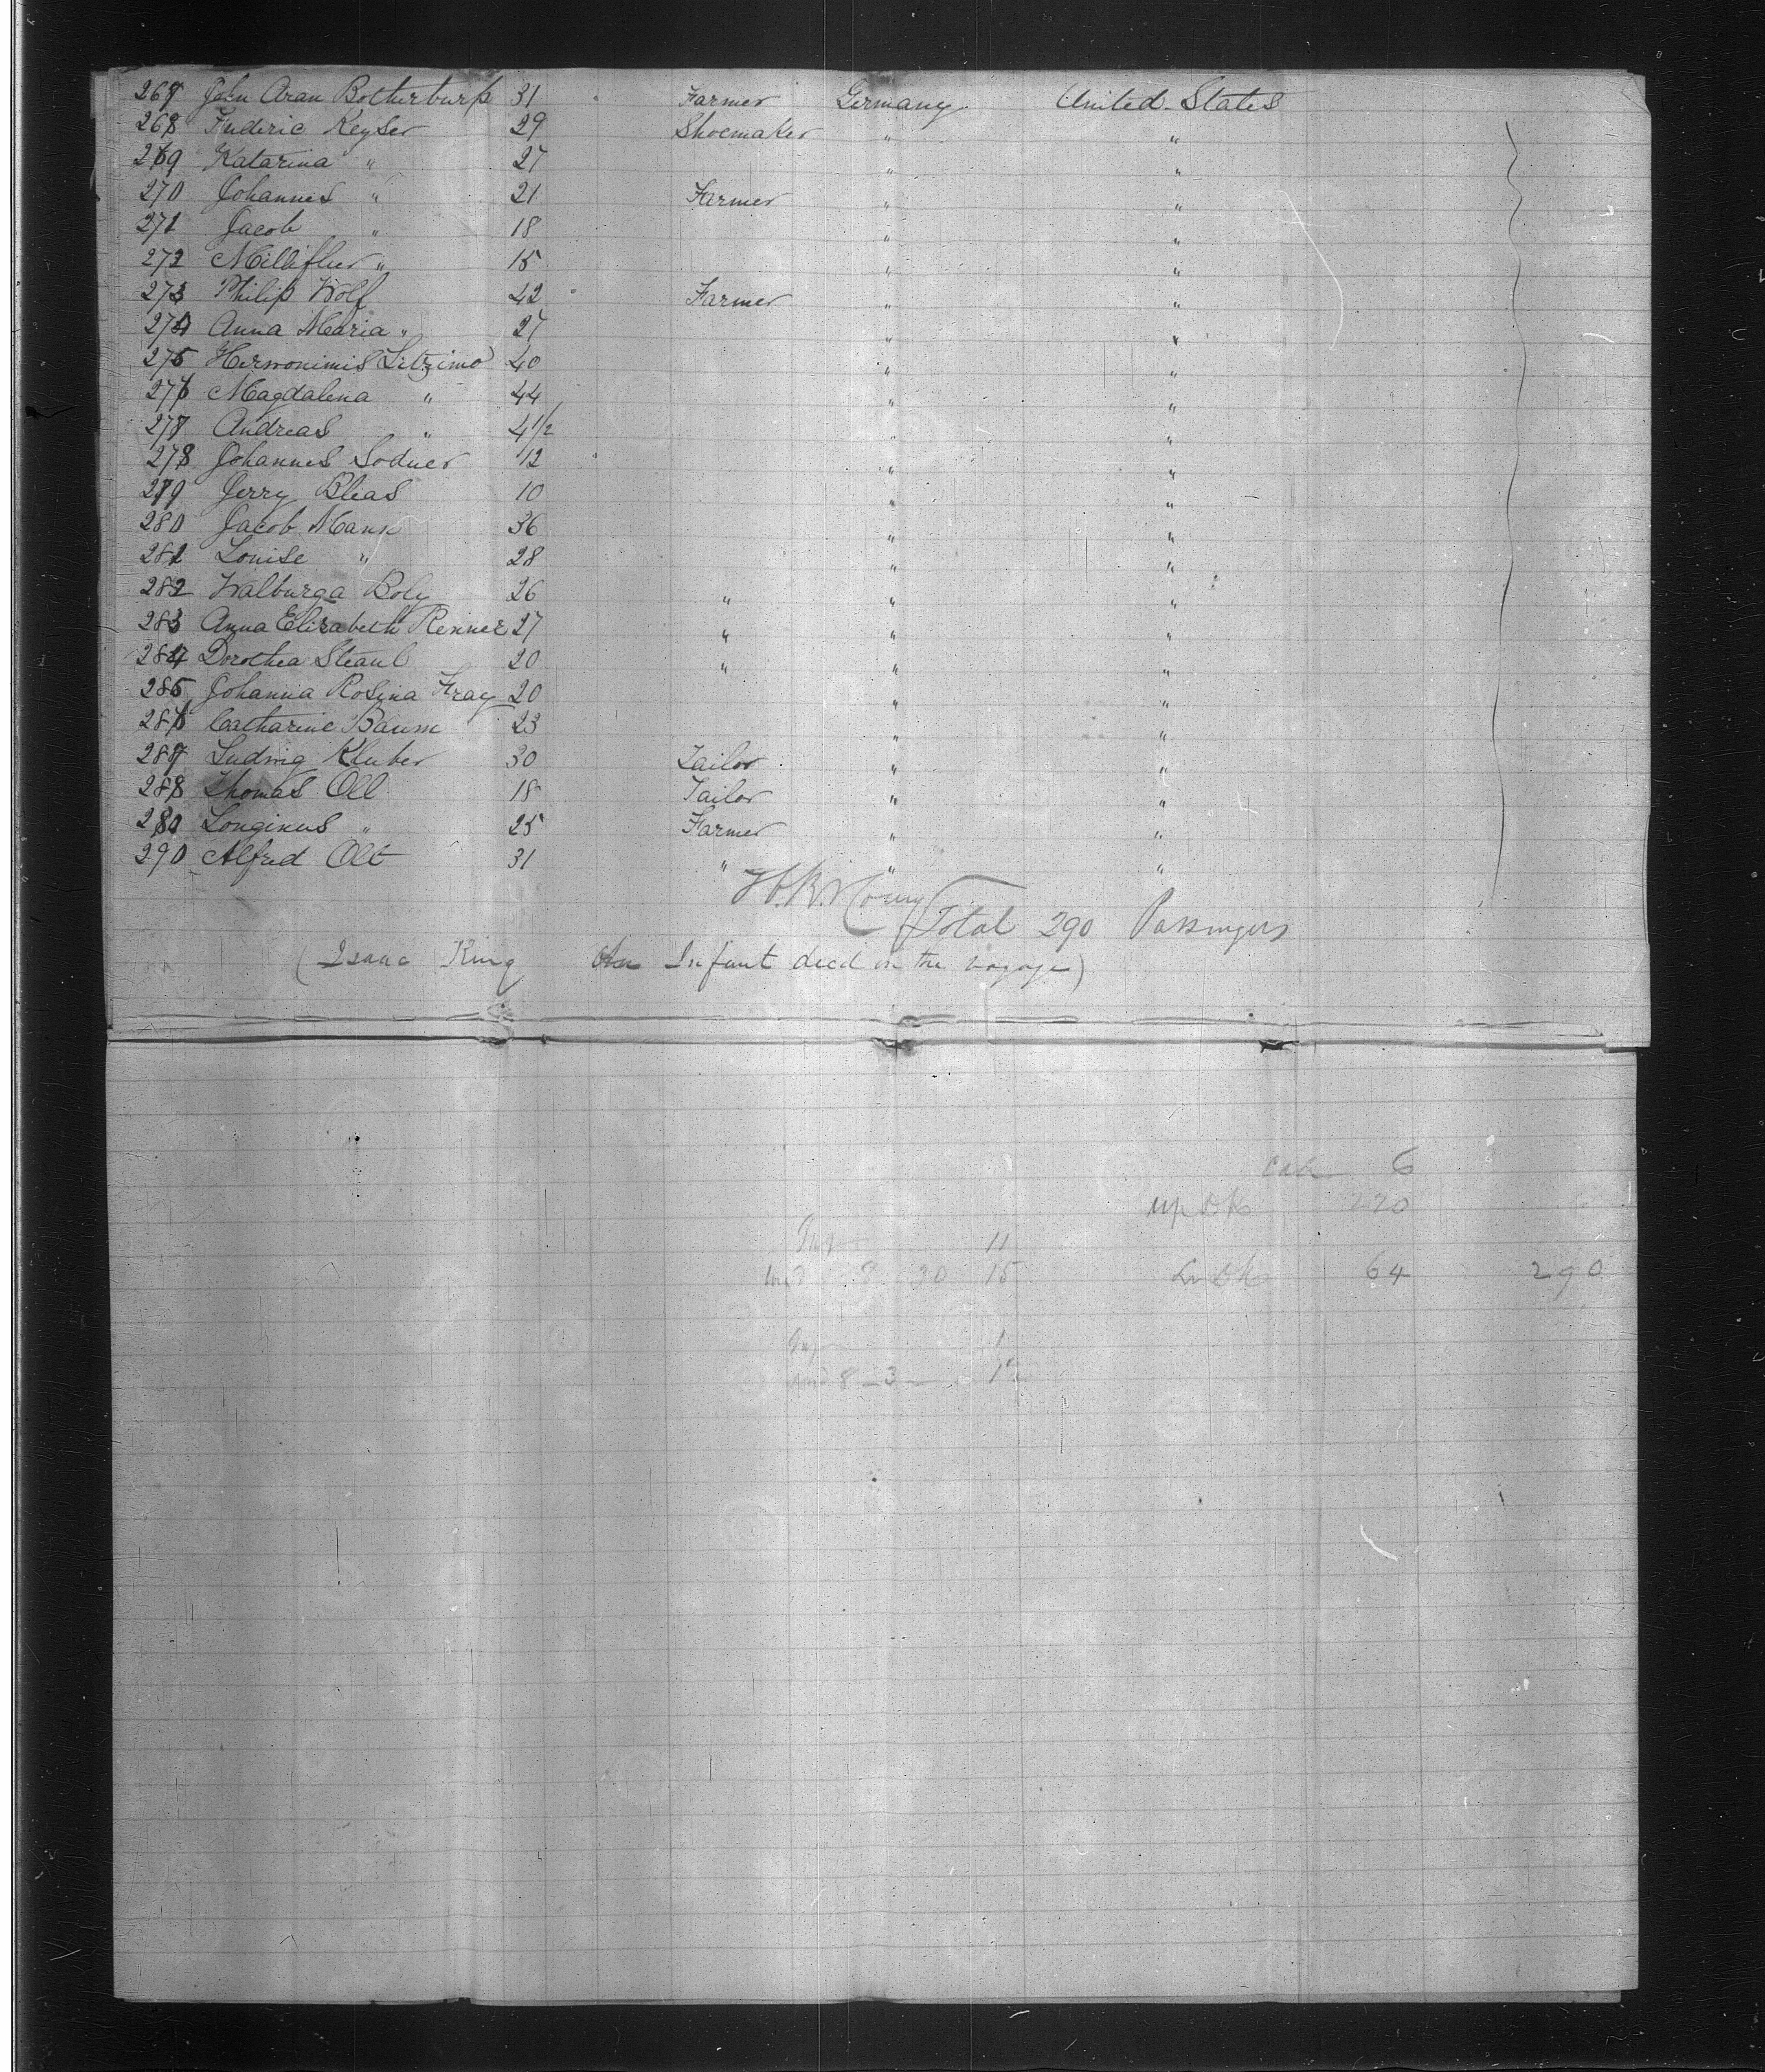 267 John Aran Botherburp 31 Farmer Germany United States
268 Frederic Keyser 29 Shoemaker " "
269 Katarina " 27 " "
270 Johannes " 21 Farmer " "
271 Jacob " 18 " "
272 " 15 " "
273 Philip Wolf 42 Farmer " "
274 Anna Maria " 27 " "
275 40 " "
276 Magdalena " 44 " "
277 Andreas " 4 1/2 " "
278 Johannes Soduer 12 " "
279 Jerry Blias 10 " "
280 Jacob Mann 36 " "
281 Louise " 28 " "
282 Walburga Boly 26 " " "
283 Anna Elizabeth Renner 27 " " "
284 Dorothea Staub 20 " " "
285 Johanna Rosina Fray 20 " "
286 Catharine Baum 23 " "
287 Ludwig Kluber 30 Tailor " "
288 Thomas Oll 18 Tailor " "
289 Longinus " 25 Farmer " "
290 Alfred Olt 31 " " "
Total 290 Passengers
(Isaac King An Infant died on the voyage)
Cab 6
up Dk 220
11
8 30 15 Lr Dk 64 290
1
8 - 3 -